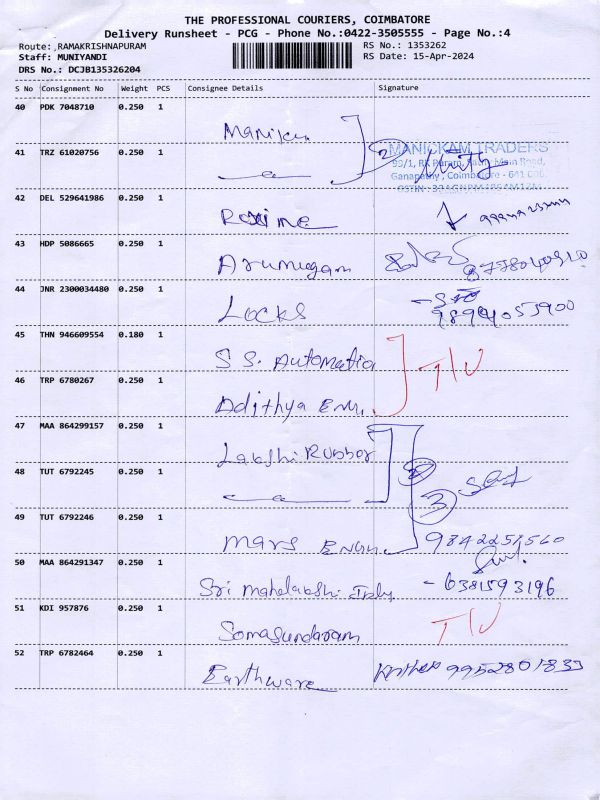 THE PROFESSIONAL COURIERS, COIMBATORE
Delivery Runsheet - PCG - Phone No.:0422-3505555 - Page No.:4
Route: ,RAMAKRISHNAPURAM RS No.: 1353262
Staff: MUNIYANDI RS Date: 15-Apr-2024
DRS No.: DCJB135326204
S No Consignment No Weight PCS Consignee Details Signature
40 PDK 7048710 0.250 1
2
MANICKAM TRADERS
41 TRZ 61020756 0.250 1
Ganapathy, Coimbatore - 641 006.
42 DEL 529641986 0.250 1
43 HDP 5086665 0.250 1
Arumugam
44 JNR 2300034480 0.250 1
Locks
45 THN 946609554 0.180 1
S.S. Automatia T/U
46 TRP 6780267 0.250 1
Adithya
47 MAA 864299157 0.250 1
Lakshi Rubbor
48 TUT 6792245 0.250 1
3
49 TUT 6792246 0.250 1
Mars Engn 9842251560
50 MAA 864291347 0.250 1
Sri - 6381593196
51 KDI 957876 0.250 1
Somasundaram T/U
52 TRP 6782464 0.250 1
Earthware 9952801833